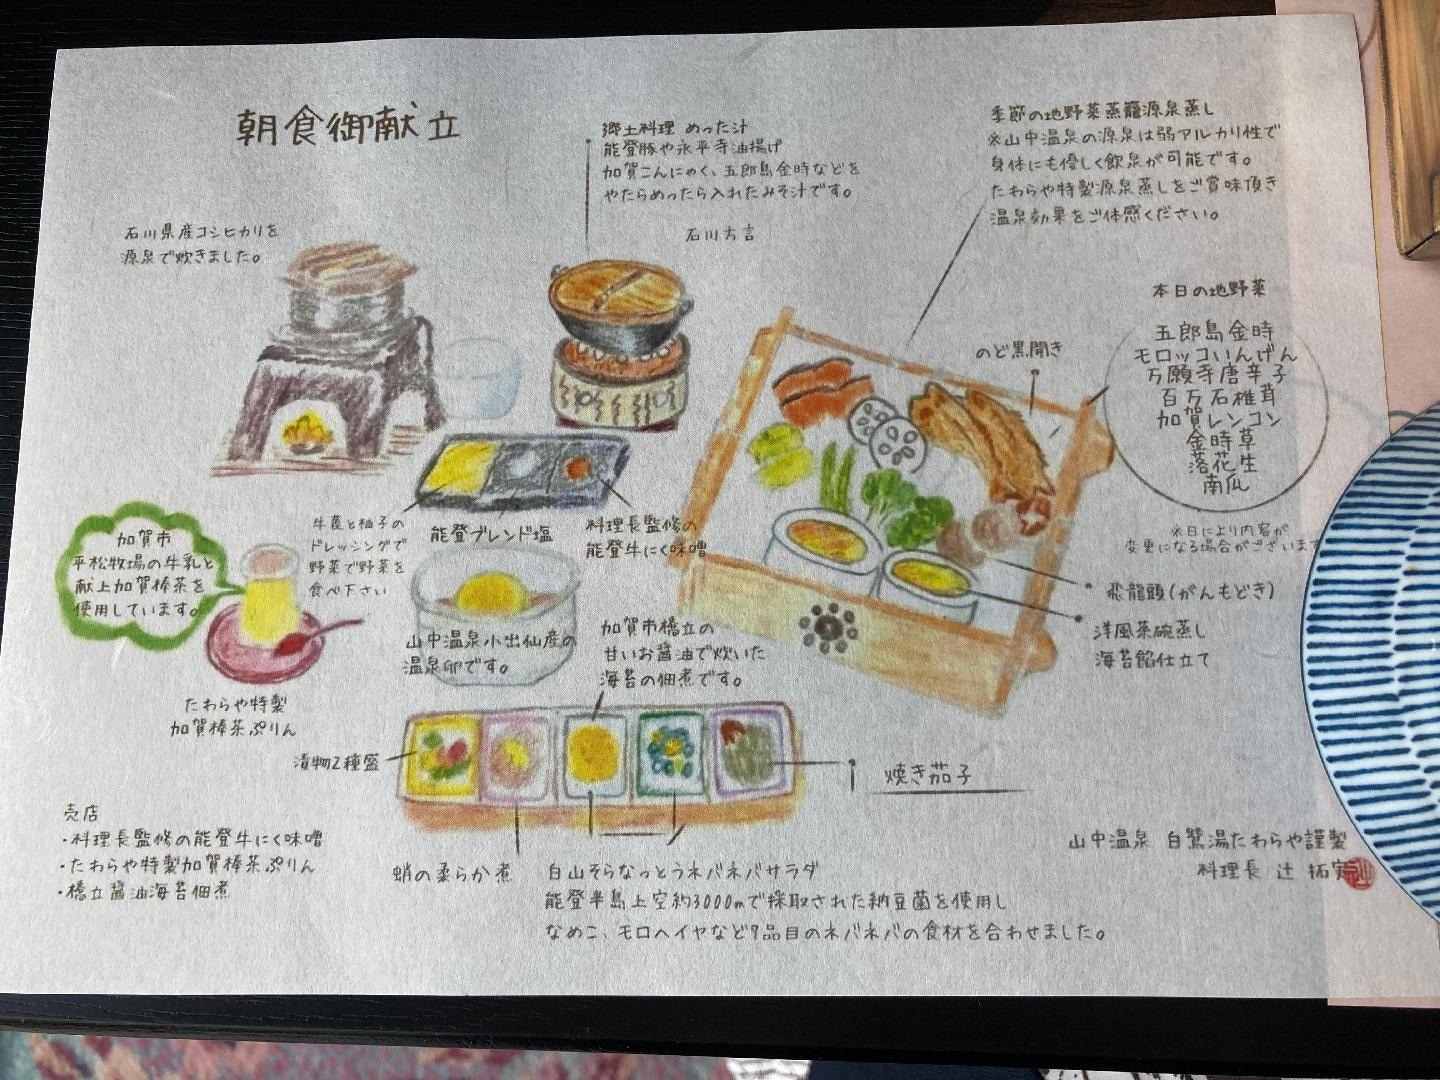 朝食御献立
郷土料理 めった汁
能登豚や永平寺油揚げ
加賀こんにゃく、五郎島金時などを
やたらめったら入れたみそ汁です。
石川方言
季節の地野菜蒸籠源泉蒸し
※山中温泉の源泉は弱アルカリ性で
身体にも優しく飲泉が可能です。
たわらや特製源泉蒸しをご賞味頂き
温泉効果をご体感ください。
石川県産コシヒカリを
源泉で炊きました。
本日の地野菜
五郎島金時
モロッコいんげん
万願寺唐辛子
百万石椎茸
加賀レンコン
金時草
落花生
南瓜
のど黒開き
※日により内容が
変更になる場合がございます
飛龍頭(がんもどき)
洋風茶碗蒸し
海苔餡仕立て
牛蒡と柚子の
ドレッシングで
野菜で野菜を
食べ下さい
能登ブレンド塩
料理長監修の
能登牛にく味噌
加賀市
平松牧場の牛乳と
献上加賀棒茶を
使用しています。
たわらや特製
加賀棒茶ぷりん
山中温泉小出仙産の
温泉卵です。
加賀市橋立の
甘いお醤油で炊いた
海苔の佃煮です。
漬物2種盛
焼き茄子
蛸の柔らか煮
白山そらなっとうネバネバサラダ
能登半島上空約3000mで採取された納豆菌を使用し
なめこ、モロヘイヤなど7品目のネバネバの食材を合わせました。
売店
・料理長監修の能登牛にく味噌
・たわらや特製加賀棒茶ぷりん
・橋立醤油海苔佃煮
山中温泉 白鷺湯たわらや謹製
料理長 辻 拓実